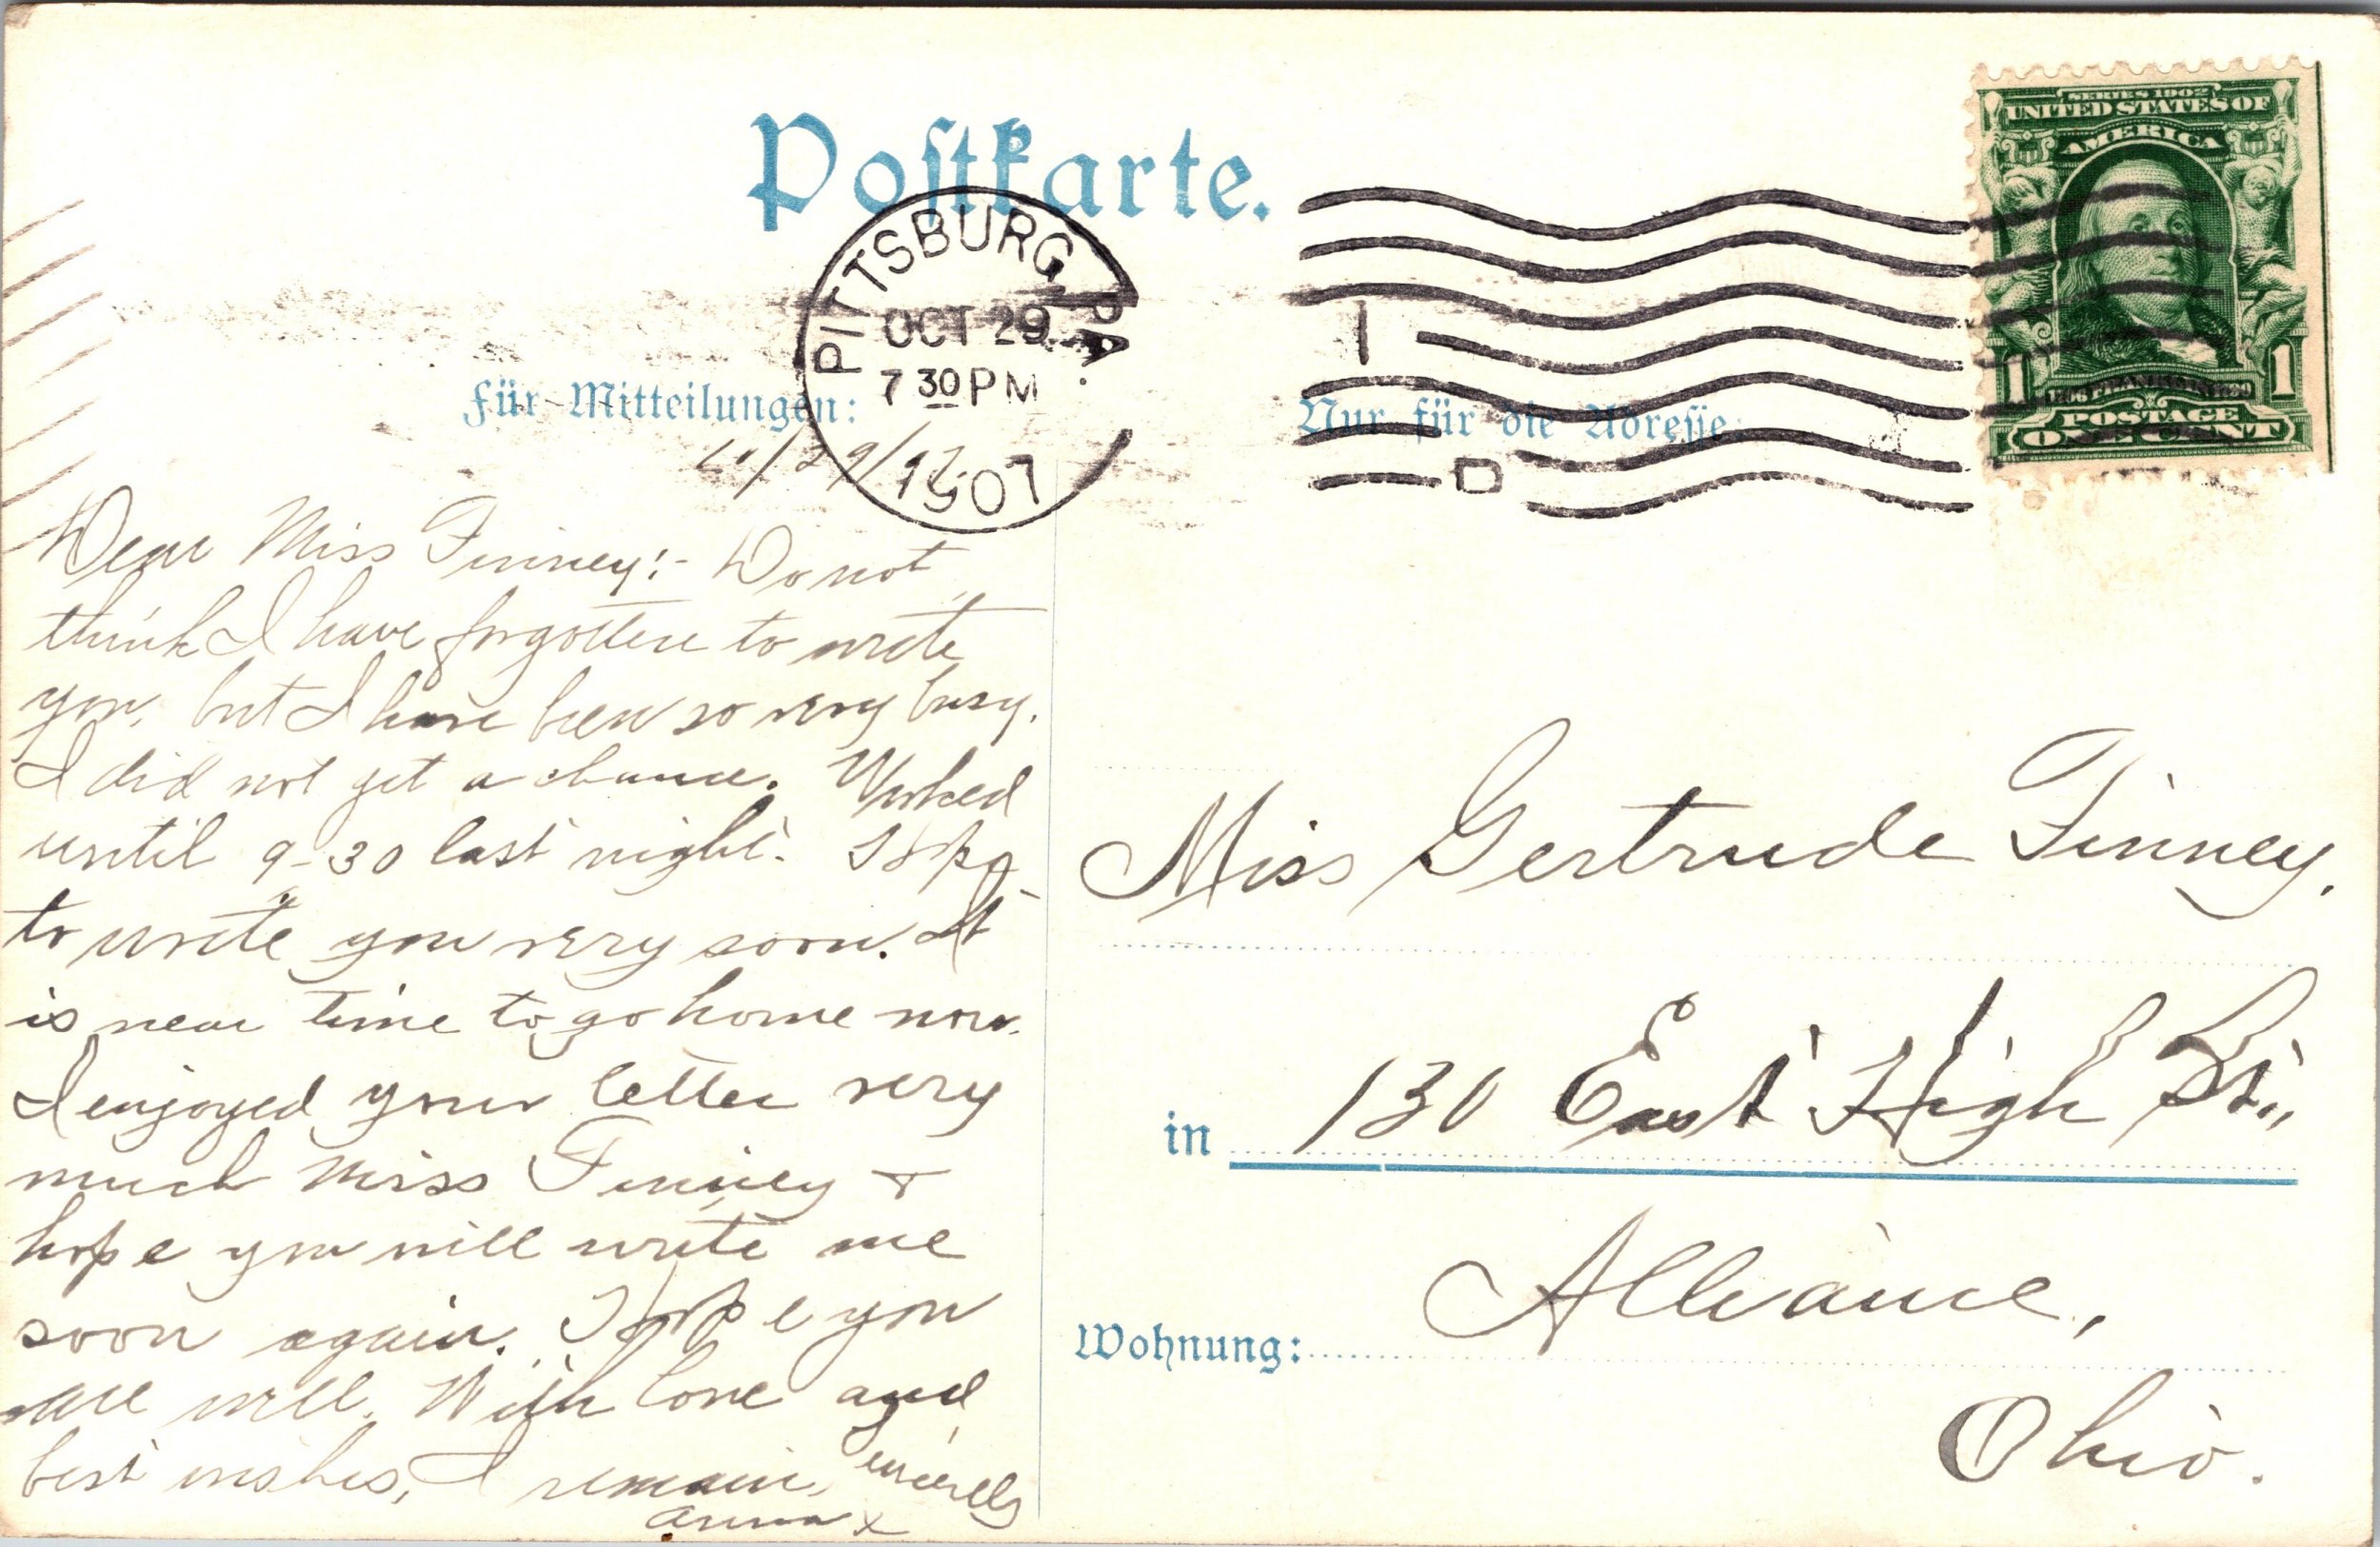 Postkarte.
SERIES 1902
UNITED STATES OF
AMERICA
1 1
POSTAGE
ONE CENT
PITTSBURG, PA.
OCT 29
7 30 PM
1907
D
Für Mitteilungen:
Nur für die Adresse:
10/29/07
Dear Miss Finney:- Do not
think I have forgotten to write
you, but I have been so very busy.
I did not get a chance. Worked
until 9-30 last night. Hope
to write you very soon. It
is near time to go home now.
I enjoyed your letter very
much Miss Finney +
hope you will write me
soon again. Hope you
are well. With love and
best wishes, I remain, sincerely
Anna x
Miss Gertrude Finney,
in 130 East High St.,
Wohnung: Alliance,
Ohio.